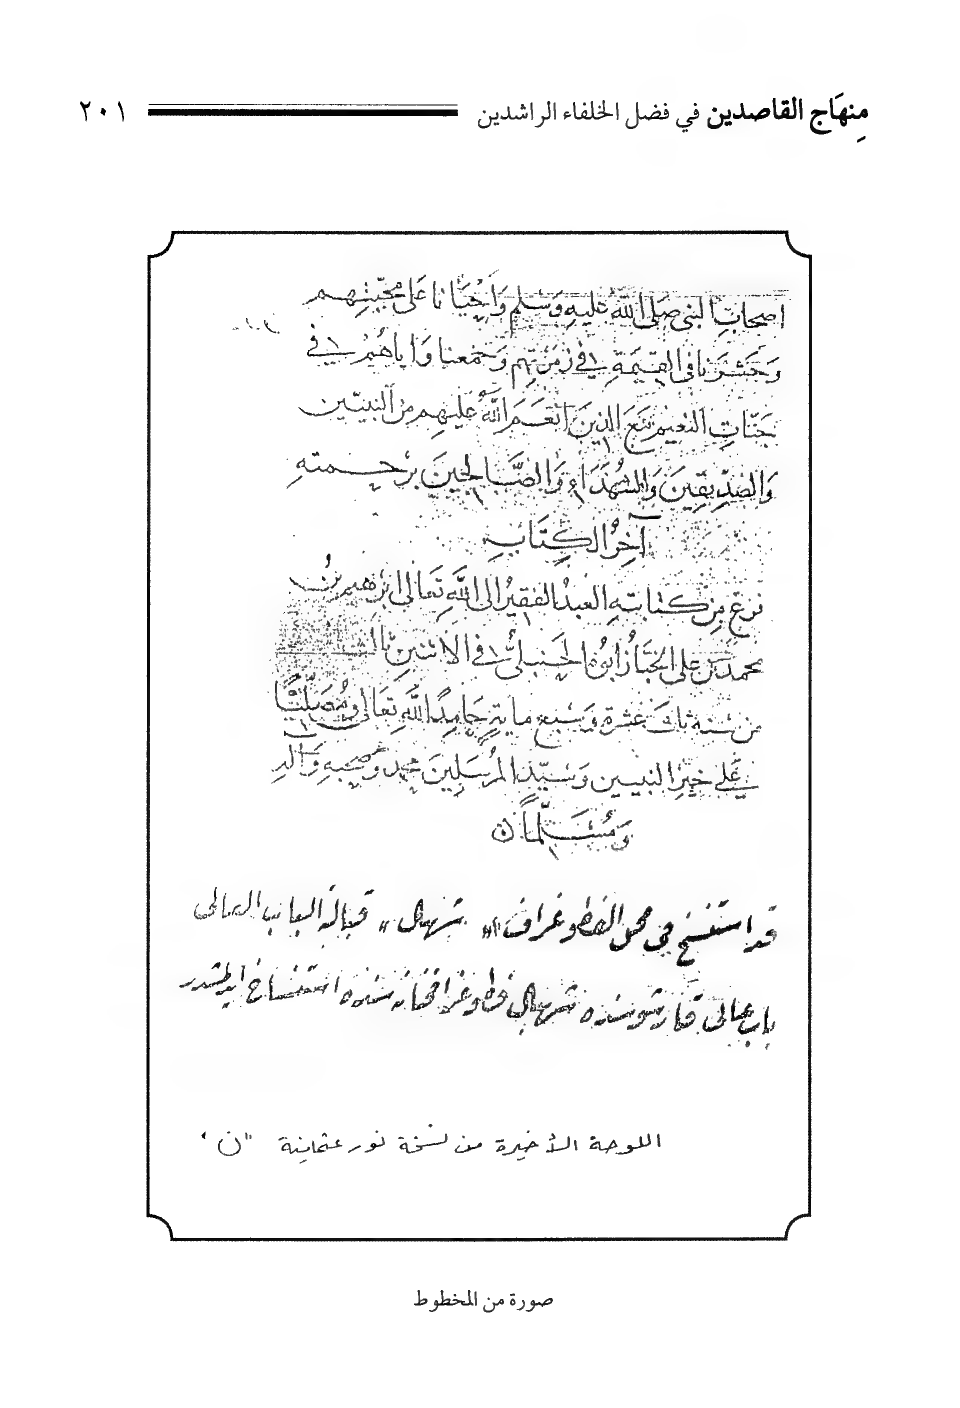 منهَاج القاصدين في فضل الخلفاء الراشدين ٢٠١
اصحاب النبي صلى الله عليه وسلم وَاحْيَانا على محبّتهم
وَحَشَرَنا في القيمَةِ في زمرَتهم وجمعنا وَاياهُمْ في
جَنّاتِ النعيم مَعَ الذينَ انعَمَ اللّهُ عليهم من النبيّين
وَالصدّيقينَ وَالشهَدَاء وَالصَّالحينَ برحمته
آخر الكتاب
فرغ من كتابته العبدُ الفقيرُ الى اللهِ تعالى ابرهيم بنُ
محمد بن على الحنبلىُّ في الاثنين
من سنة ثلث عشرة وسبع ماية حَامِدًا للهِ تعَالى وَمُصَلّيًا
على خير النبيين وَسَيّد المرسَلينَ محمد وصحبه وَآله
وَمُسَلّمًا
قد استنسخ فى محل
باب عالى
اللوحة الأخيرة من نسخة نور عثمانية "ن"
صورة من المخطوط